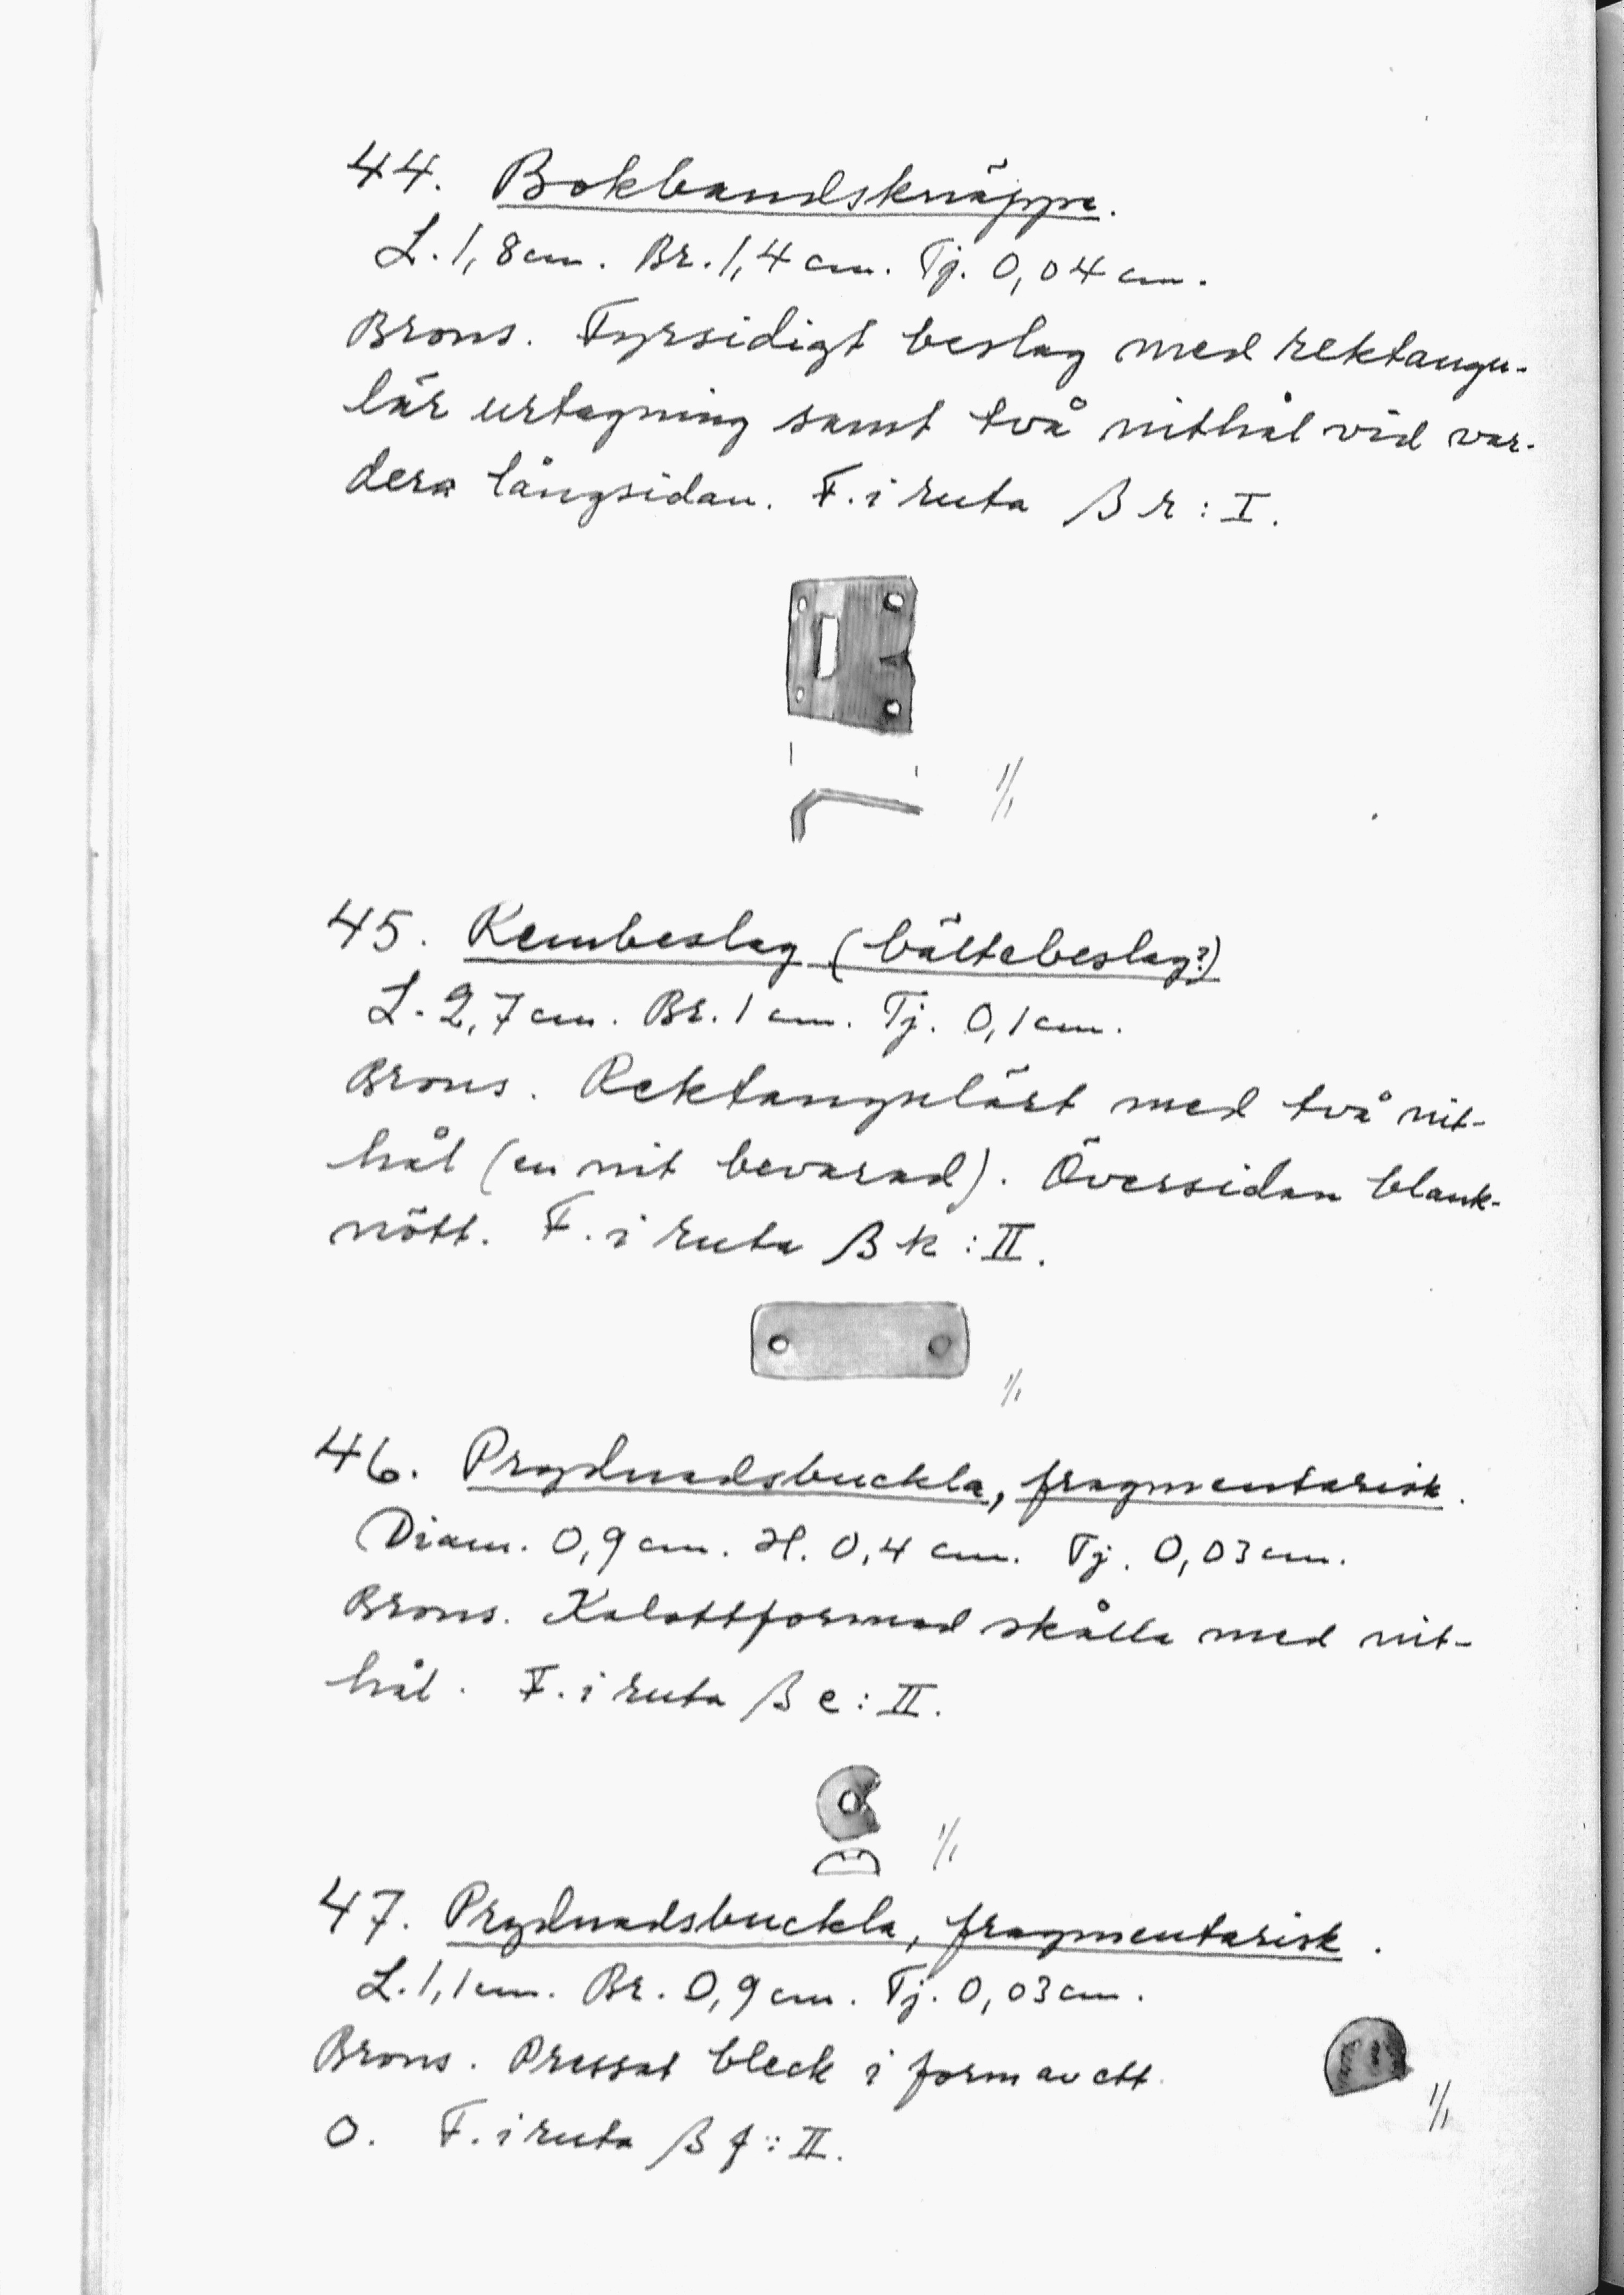 44. Bokbandsknäppe.
L. 1,8 cm. Br. 1,4 cm. Tj. 0,04 cm.
Brons. Fyrsidigt beslag med rektangu-
lär urtagning samt två nithål vid var-
dera långsidan. F. i ruta β r : I.
1/1
45. Rembeslag (bältebeslag?)
L. 2,7 cm. Br. 1 cm. Tj. 0,1 cm.
Brons. Rektangulärt med två nit-
hål (en nit bevarad). Översidan blank-
nött. F. i ruta β k : II.
1/1
46. Prydnadsbuckla, fragmentarisk.
Diam. 0,9 cm. H. 0,4 cm. Tj. 0,03 cm.
Brons. Kalottformad skålla med nit-
hål. F. i ruta β e : II.
1/1
47. Prydnadsbuckla, fragmentarisk.
L. 1,1 cm. Br. 0,9 cm. Tj. 0,03 cm.
Brons. Pressat bleck i form av ett
O. F. i ruta β f : II.
1/1